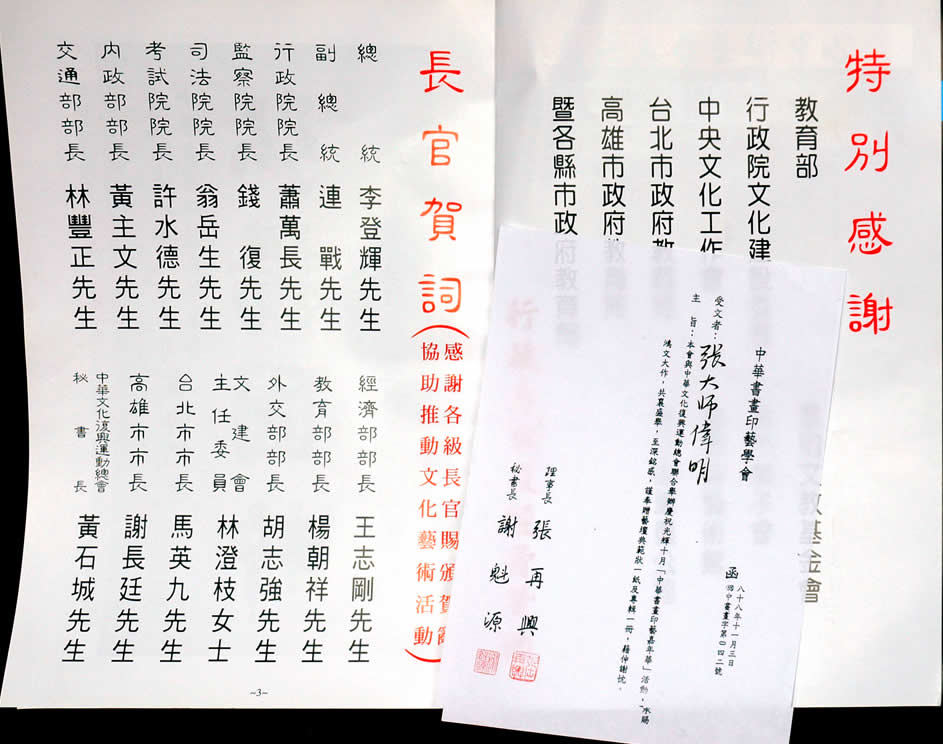 特別感謝
教育部
行政院文化建
中央文化工作
台北市政府教
高雄市政府教
暨各縣市政府教育
教基金會
中華書畫印藝學會
函
八十八年十一月三日
㊇中書畫字第〇四二號
受文者：張大師偉明
主　旨：本會與中華文化復興運動總會聯合舉辦慶祝光輝十月「中華書畫印藝嘉年華」活動，承賜
鴻文大作，共襄盛舉，至深銘感，謹奉贈藝壇典範狀一紙及專輯一冊，藉伸謝忱。
理事長　張再興
秘書長　謝魁源
長官賀詞
（感謝各級長官賜頒賀
協助推動文化藝術活動）
總統　李登輝先生
副總統　連戰先生
行政院院長　蕭萬長先生
監察院院長　錢復先生
司法院院長　翁岳生先生
考試院院長　許水德先生
內政部部長　黃主文先生
交通部部長　林豐正先生
經濟部部長　王志剛先生
教育部部長　楊朝祥先生
外交部部長　胡志強先生
文建會
主任委員　林澄枝女士
台北市市長　馬英九先生
高雄市市長　謝長廷先生
中華文化復興運動總會
秘書長　黃石城先生
~3~